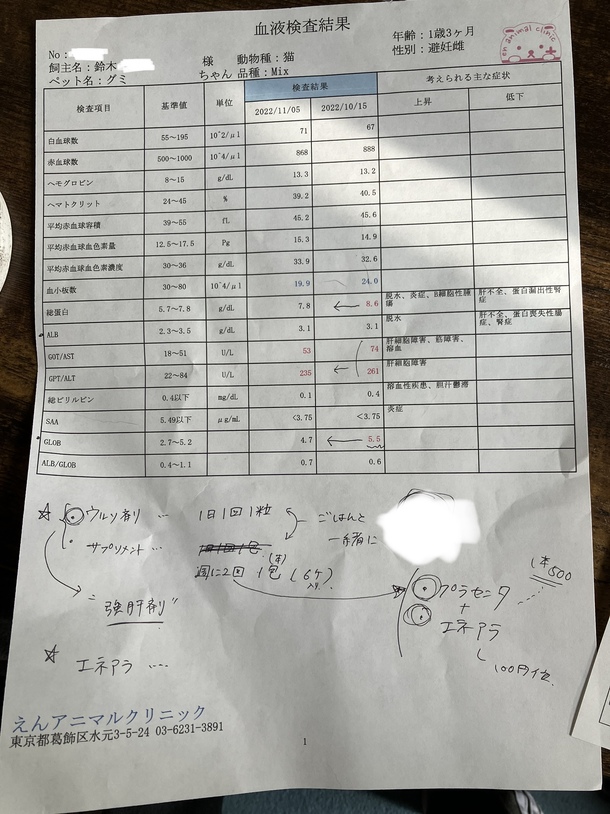 血液検査結果
en animal clinic
No:
飼主名:鈴木 様 動物種:猫 年齢:1歳3ヶ月
ペット名:グミ ちゃん 品種:Mix 性別:避妊雌
検査項目 基準値 単位 検査結果 考えられる主な症状
2022/11/05 2022/10/15 上昇 低下
白血球数 55~195 10^2/μl 71 67
赤血球数 500~1000 10^4/μl 868 888
ヘモグロビン 8~15 g/dL 13.3 13.2
ヘマトクリット 24~45 % 39.2 40.5
平均赤血球容積 39~55 fL 45.2 45.6
平均赤血球血色素量 12.5~17.5 Pg 15.3 14.9
平均赤血球血色素濃度 30~36 g/dL 33.9 32.6
血小板数 30~80 10^4/μl 19.9 24.0
総蛋白 5.7~7.8 g/dL 7.8 ← 8.6 脱水、炎症、B細胞性腫瘍 肝不全、蛋白漏出性腎症
ALB 2.3~3.5 g/dL 3.1 3.1 脱水 肝不全、蛋白喪失性腸症、腎症
GOT/AST 18~51 U/L 53 74 肝細胞障害、筋障害、溶血
GPT/ALT 22~84 U/L 235 ← 261 肝細胞障害
総ビリルビン 0.4以下 mg/dL 0.1 0.4 溶血性疾患、胆汁鬱滞
SAA 5.49以下 μg/mL <3.75 <3.75 炎症
GLOB 2.7~5.2 g/dL 4.7 ← 5.5
ALB/GLOB 0.4~1.1 0.7 0.6
☆ ウルソ剤 … 1日1回1粒 ごはんと
サプリメント … 一緒に
週に2回 1包 (6ケ入り)
"強肝剤"
プラセンタ 1本500
+
エネアラ
100円位
☆ エネアラ ….
えんアニマルクリニック
東京都葛飾区水元3-5-24 03-6231-3891
1